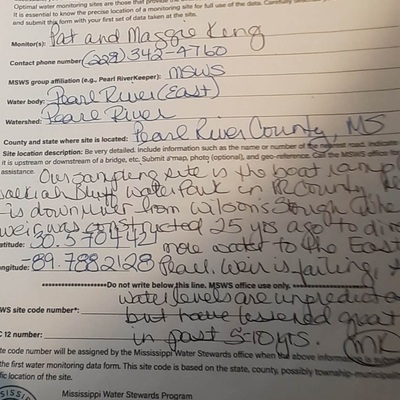 Optimal water monitoring sites are those that provide
It is essential to know the precise location of a monitoring site for full use of the data. Carefully
and submit this form with your first set of data taken at the site.
Monitor(s): Pat and Maggie King
Contact phone number: (228) 342-4760
MSWS group affiliation (e.g., Pearl RiverKeeper): MSWS
Water body: Pearl River (East)
Watershed: Pearl River
County and state where site is located: Pearl River County, MS
Site location description: Be very detailed. Include information such as the name or number of the nearest road, indicate
it is upstream or downstream of a bridge, etc. Submit a map, photo (optional), and geo-reference. Call the MSWS office for
assistance. Our sampling site is the boat ramp
Walkiah Bluff Water Park in PR County
is downriver from Wilson's Slough
weir was constructed 25 yrs ago to
atitude: 30.5784421 more water to the East
ongitude: -89.7882128 Pearl. Weir is failing,
Do not write below this line. MSWS office use only.
water levels are
WS site code number*: but have lessened
C 12 number: in past 5-10 yrs. MK
te code number will be assigned by the Mississippi Water Stewards office when the above information is
the first water monitoring data form. This site code is based on the state, county, possibly township-municipality
fic location of the site.
Mississippi Water Stewards Program